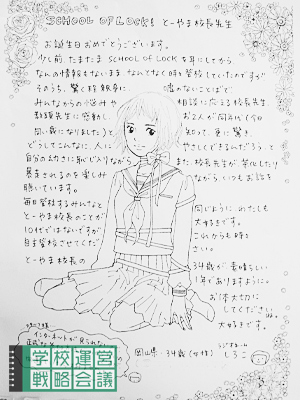 SCHOOL OF LOCK! とーやま校長先生
お誕生日おめでとうございます。
少し前、たまたま SCHOOL OF LOCK を耳にしてから
なんの情報もないまま なんてなく時々登校していたのですが
そのうち、驚く程 親身に 嘘のないことばで
みんなからの悩みや 相談に応える校長先生、
教頭先生に感動し、 お2人が同年代(今
同い歳になりました)と 知って、更に驚き、
どうしてこんなに、人に やさしくできるんだろう…と
自分の心せまさに恥じ入りながら また校長先生が
暴走されるのを楽しみ ながら、いつもお話を
聴いています。
毎日登校するみんなと 同じように わたしも
とーやま校長のことが 大好きです。
10代ではないですが これからも時々
登校させてくだ さい。
とーやま校長の 34歳が素晴らしい
1年でありますように。
お体大切に
してください。
大好きです。
岡山県・34歳(女性)
ラジオネーム しろこ
インターネットが見られな
学校運営
戦略会議